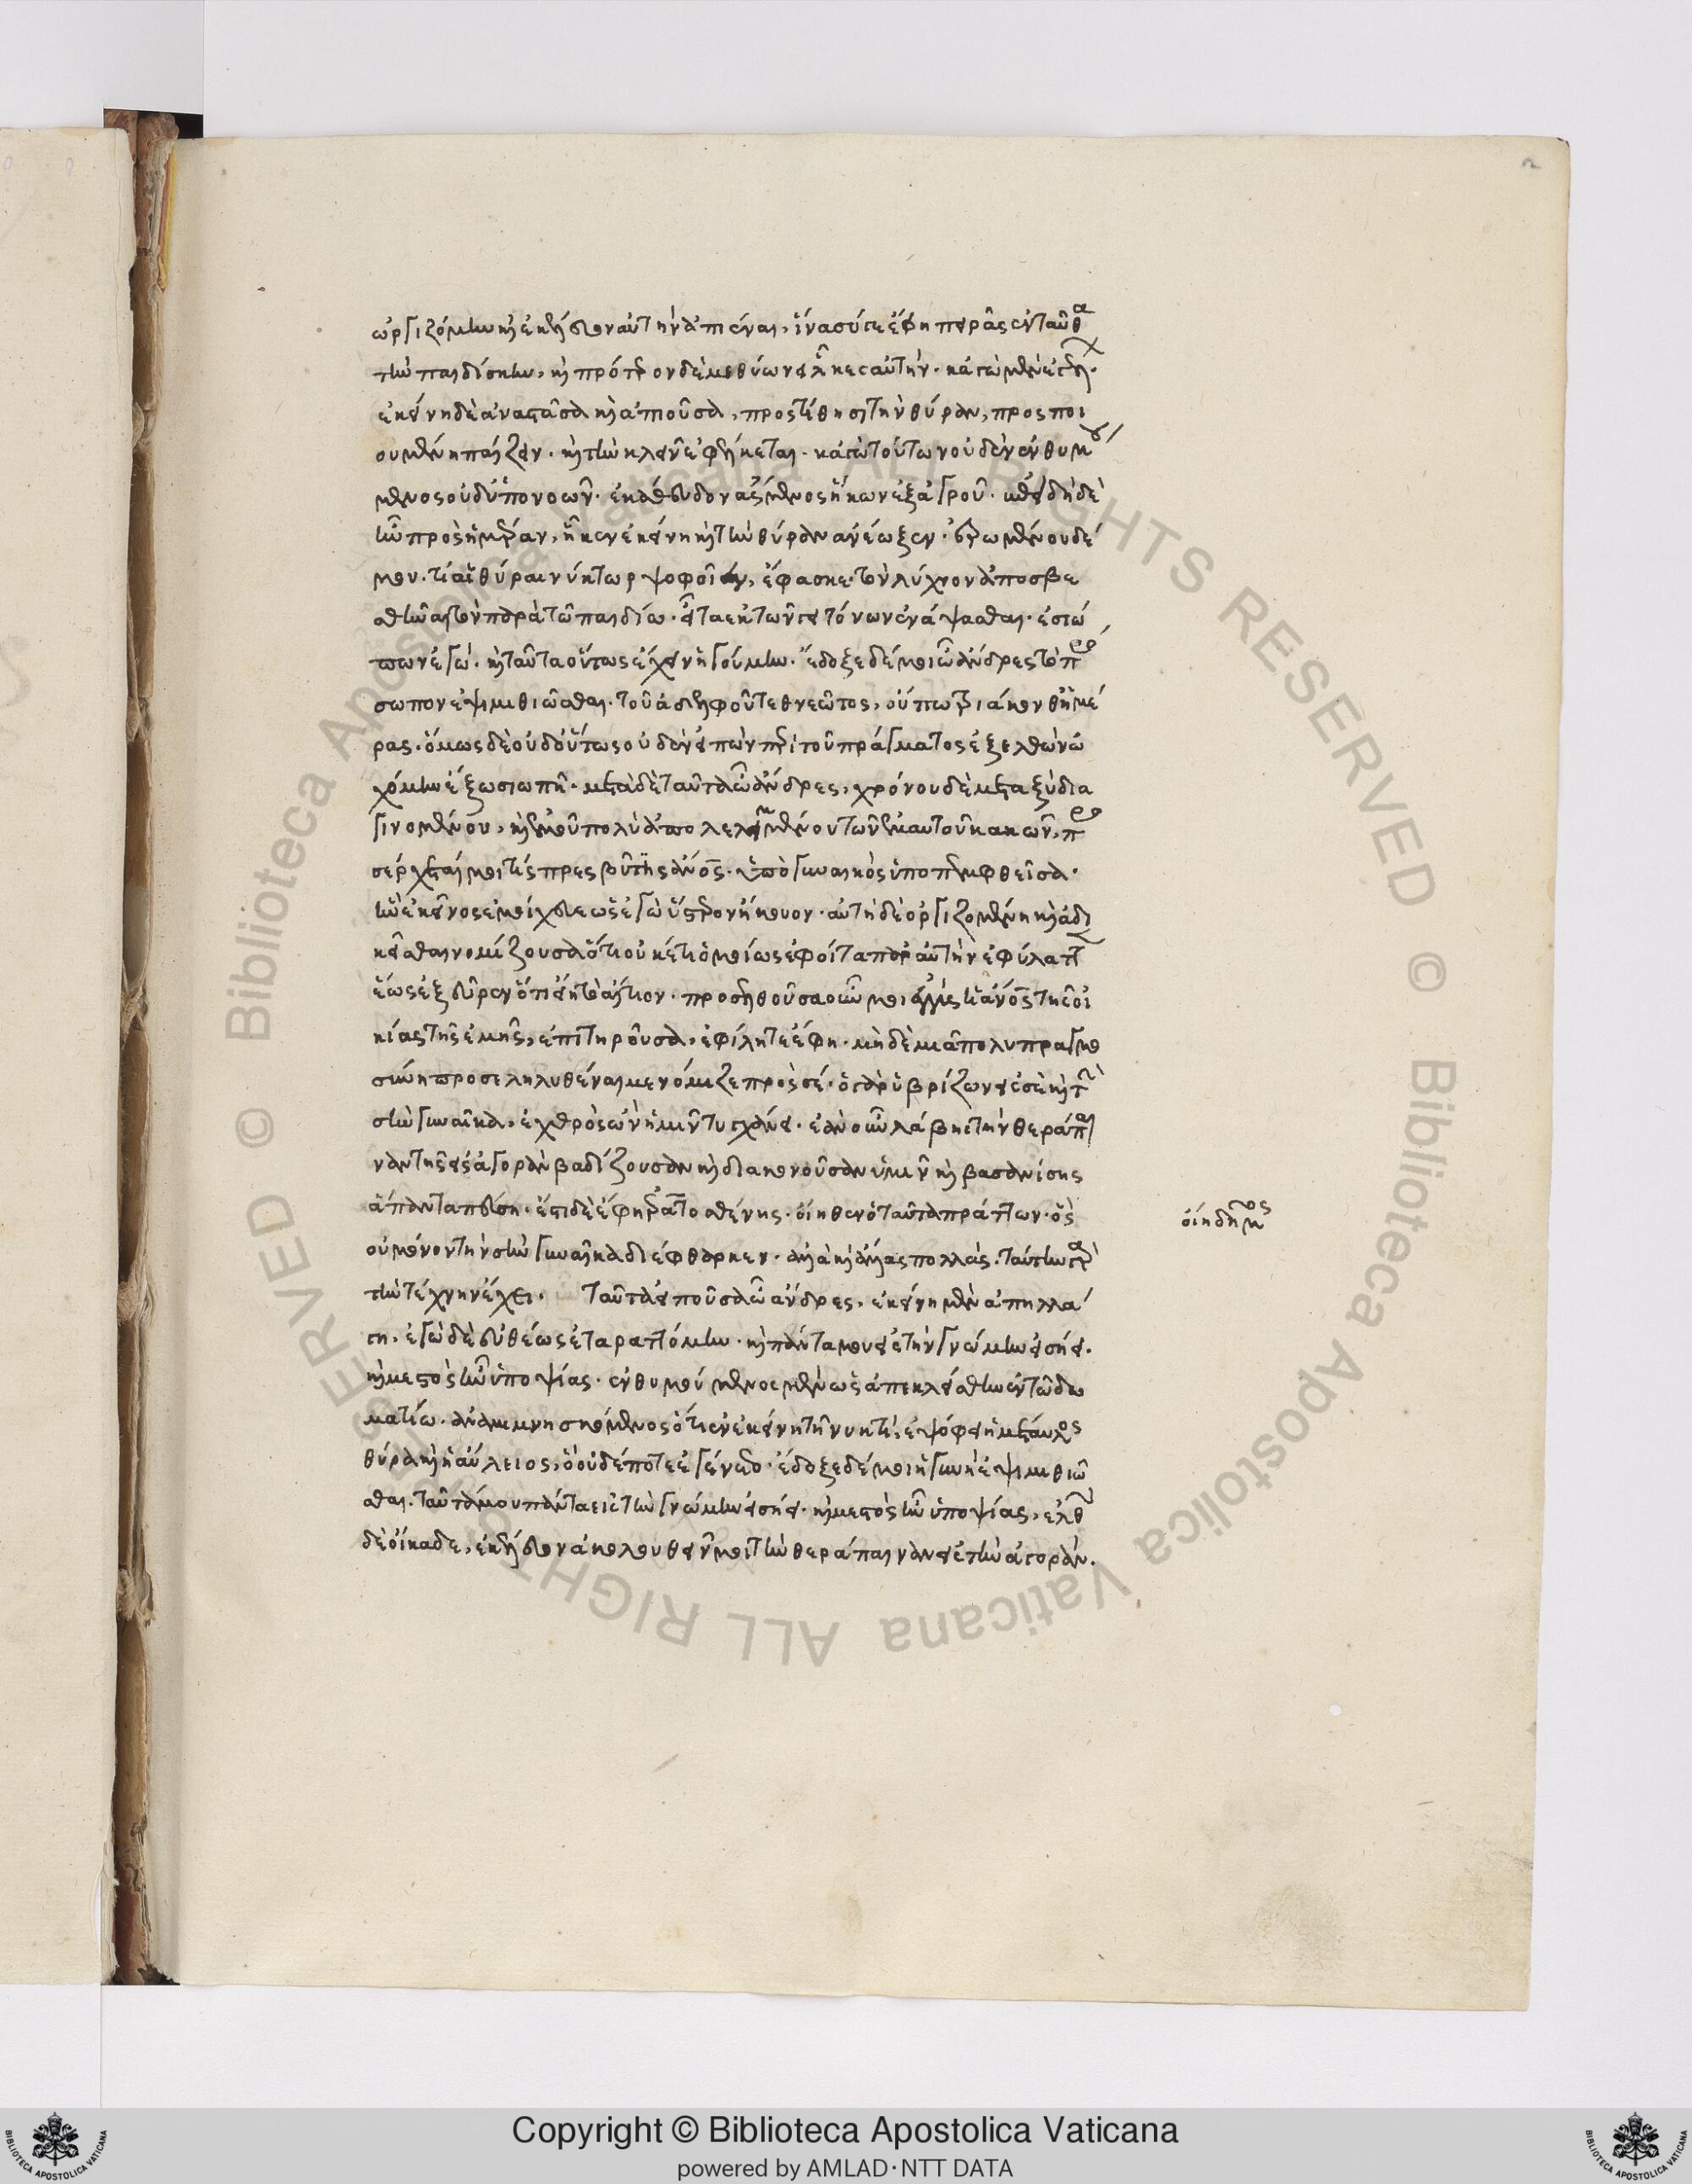 ὠργιζόμην καὶ ἐκέλευον αὐτὴν ἀπιέναι, ἵνα σύ γε ἔφη πειρᾶς ἐνταῦθα
τὴν παιδίσκην, καὶ πρότερον δὲ μεθύων εἷλκες αὐτήν. κἀγὼ μὲν ἐγέλων.
ἐκείνη δὲ ἀναστᾶσα καὶ ἀπιοῦσα, προστίθησι τὴν θύραν, προσποι
ουμένη παίζειν. καὶ τὴν κλεῖν ἐφέλκεται. κἀγὼ τούτων οὐδὲν ἐνθυμού
μενος οὐδ' ὑπονοῶν. ἐκάθευδον ἄσμενος ἥκων ἐξ ἀγροῦ. ἐπειδὴ δὲ
ἦν πρὸς ἡμέραν, ἧκεν ἐκείνη καὶ τὴν θύραν ἀνέωξεν. ἐρομένου δέ
μου. τί αἱ θύραι νύκτωρ ψοφοῖεν, ἔφασκε τὸν λύχνον ἀποσβε
σθῆναι τὸν παρὰ τῶ παιδίω. εἶτα ἐκ τῶν γειτόνων ἐνάψασθαι. ἐσιώ
πων ἐγώ. καὶ ταῦτα οὕτως ἔχειν ἡγούμην. ἔδοξε δέ μοι ὦ ἄνδρες τὸ πρό
σωπον ἐψιμιθιῶσθαι. τοῦ ἀδελφοῦ τεθνεῶτος, οὔπω τριάκονθ' ἡμέ
ρας. ὅμως δὲ οὐδ' οὕτως οὐδὲν εἰπὼν περὶ τοῦ πράγματος ἐξελθὼν ὠ
χόμην ἔξω σιωπῆ. μετὰ δὲ ταῦτα ὦ ἄνδρες, χρόνου δὲ μεταξὺ δια
γινομένου, καὶ ἐμοῦ πολὺ ἀπολελειμμένου τῶν ἐμαυτοῦ κακῶν, προ
σέρχεταί μοι τίς πρεσβῦτις ἄνος. ὑπὸ γυναικὸς ὑποπεμφθεῖσα.
ἣν ἐκεῖνος ἐμοίχευεν ὡς ἐγὼ ὕστερον ἤκουον. αὐτὴ δὲ ὀργιζομένη καὶ ἀδι
κεῖσθαι νομίζουσα ὅτι οὐκέτι ὁμοίως ἐφοίτα παρ' αὐτὴν ἐφύλαττεν
ἕως ἐξεῦρεν ὅτι εἴη τὸ αἴτιον. προσελθοῦσα οὖν μοι ἐγγὺς ἡ ἄνος τῆς οἰ
κίας τῆς ἐμῆς, ἐπιτηροῦσα, εὐφίλητε ἔφη. μηδεμιᾶ πολυπραγμο
σύνη προσεληλυθέναι με νόμιζε πρὸς σέ. ὁ γὰρ ὑβρίζων εἰς σὲ καὶ τὴν
σὴν γυναῖκα, ἐχθρὸς ὢν ἡμῖν τυγχάνει. ἐὰν οὖν λάβης τὴν θεράπαι
ναν τὴν εἰς ἀγορὰν βαδίζουσαν καὶ διακονοῦσαν ὑμῖν καὶ βασανίσης
ἅπαντα πεύση. ἔστι δὲ ἔφη ἐρατοσθένης. ὀίηθεν ὁ ταῦτα πράττων. ὃς
οὐ μόνον τὴν σὴν γυναῖκα διέφθαρκεν. ἀλλὰ καὶ ἄλλας πολλάς. ταύτην γὰρ
τὴν τέχνην ἔχει. ταῦτα εἰποῦσα ὦ ἄνδρες, ἐκείνη μὲν ἀπηλλά
γη. ἐγὼ δὲ εὐθέως ἐταραττόμην. καὶ πάντα μου εἰς τὴν γνώμην εἰσήει.
καὶ μεστὸς ἦν ὑποψίας. ἐνθυμούμενος μὲν ὡς ἀπεκλείσθην ἐν τῶ δω
ματίω. ἀναμιμνησκόμενος ὅτι ἐν ἐκείνη τῆ νυκτί, ἐψόφει ἡ μέταυλος
θύρα καὶ ἡ αὔλειος, ὃ οὐδέποτε ἐγένετο. ἔδοξε δέ μοι ἡ γυνὴ ἐψιμιθιῶ
σθαι. ταῦτά μου πάντα εἰς τὴν γνώμην εἰσήει. καὶ μεστὸς ἦν ὑποψίας, ἐλθὼν
δὲ οἴκαδε, ἐκέλευον ἀκολουθεῖν μοι τὴν θεράπαιναν εἰς τὴν ἀγοράν.
ὀίηδημος
Copyright © Biblioteca Apostolica Vaticana
powered by AMLAD·NTT DATA